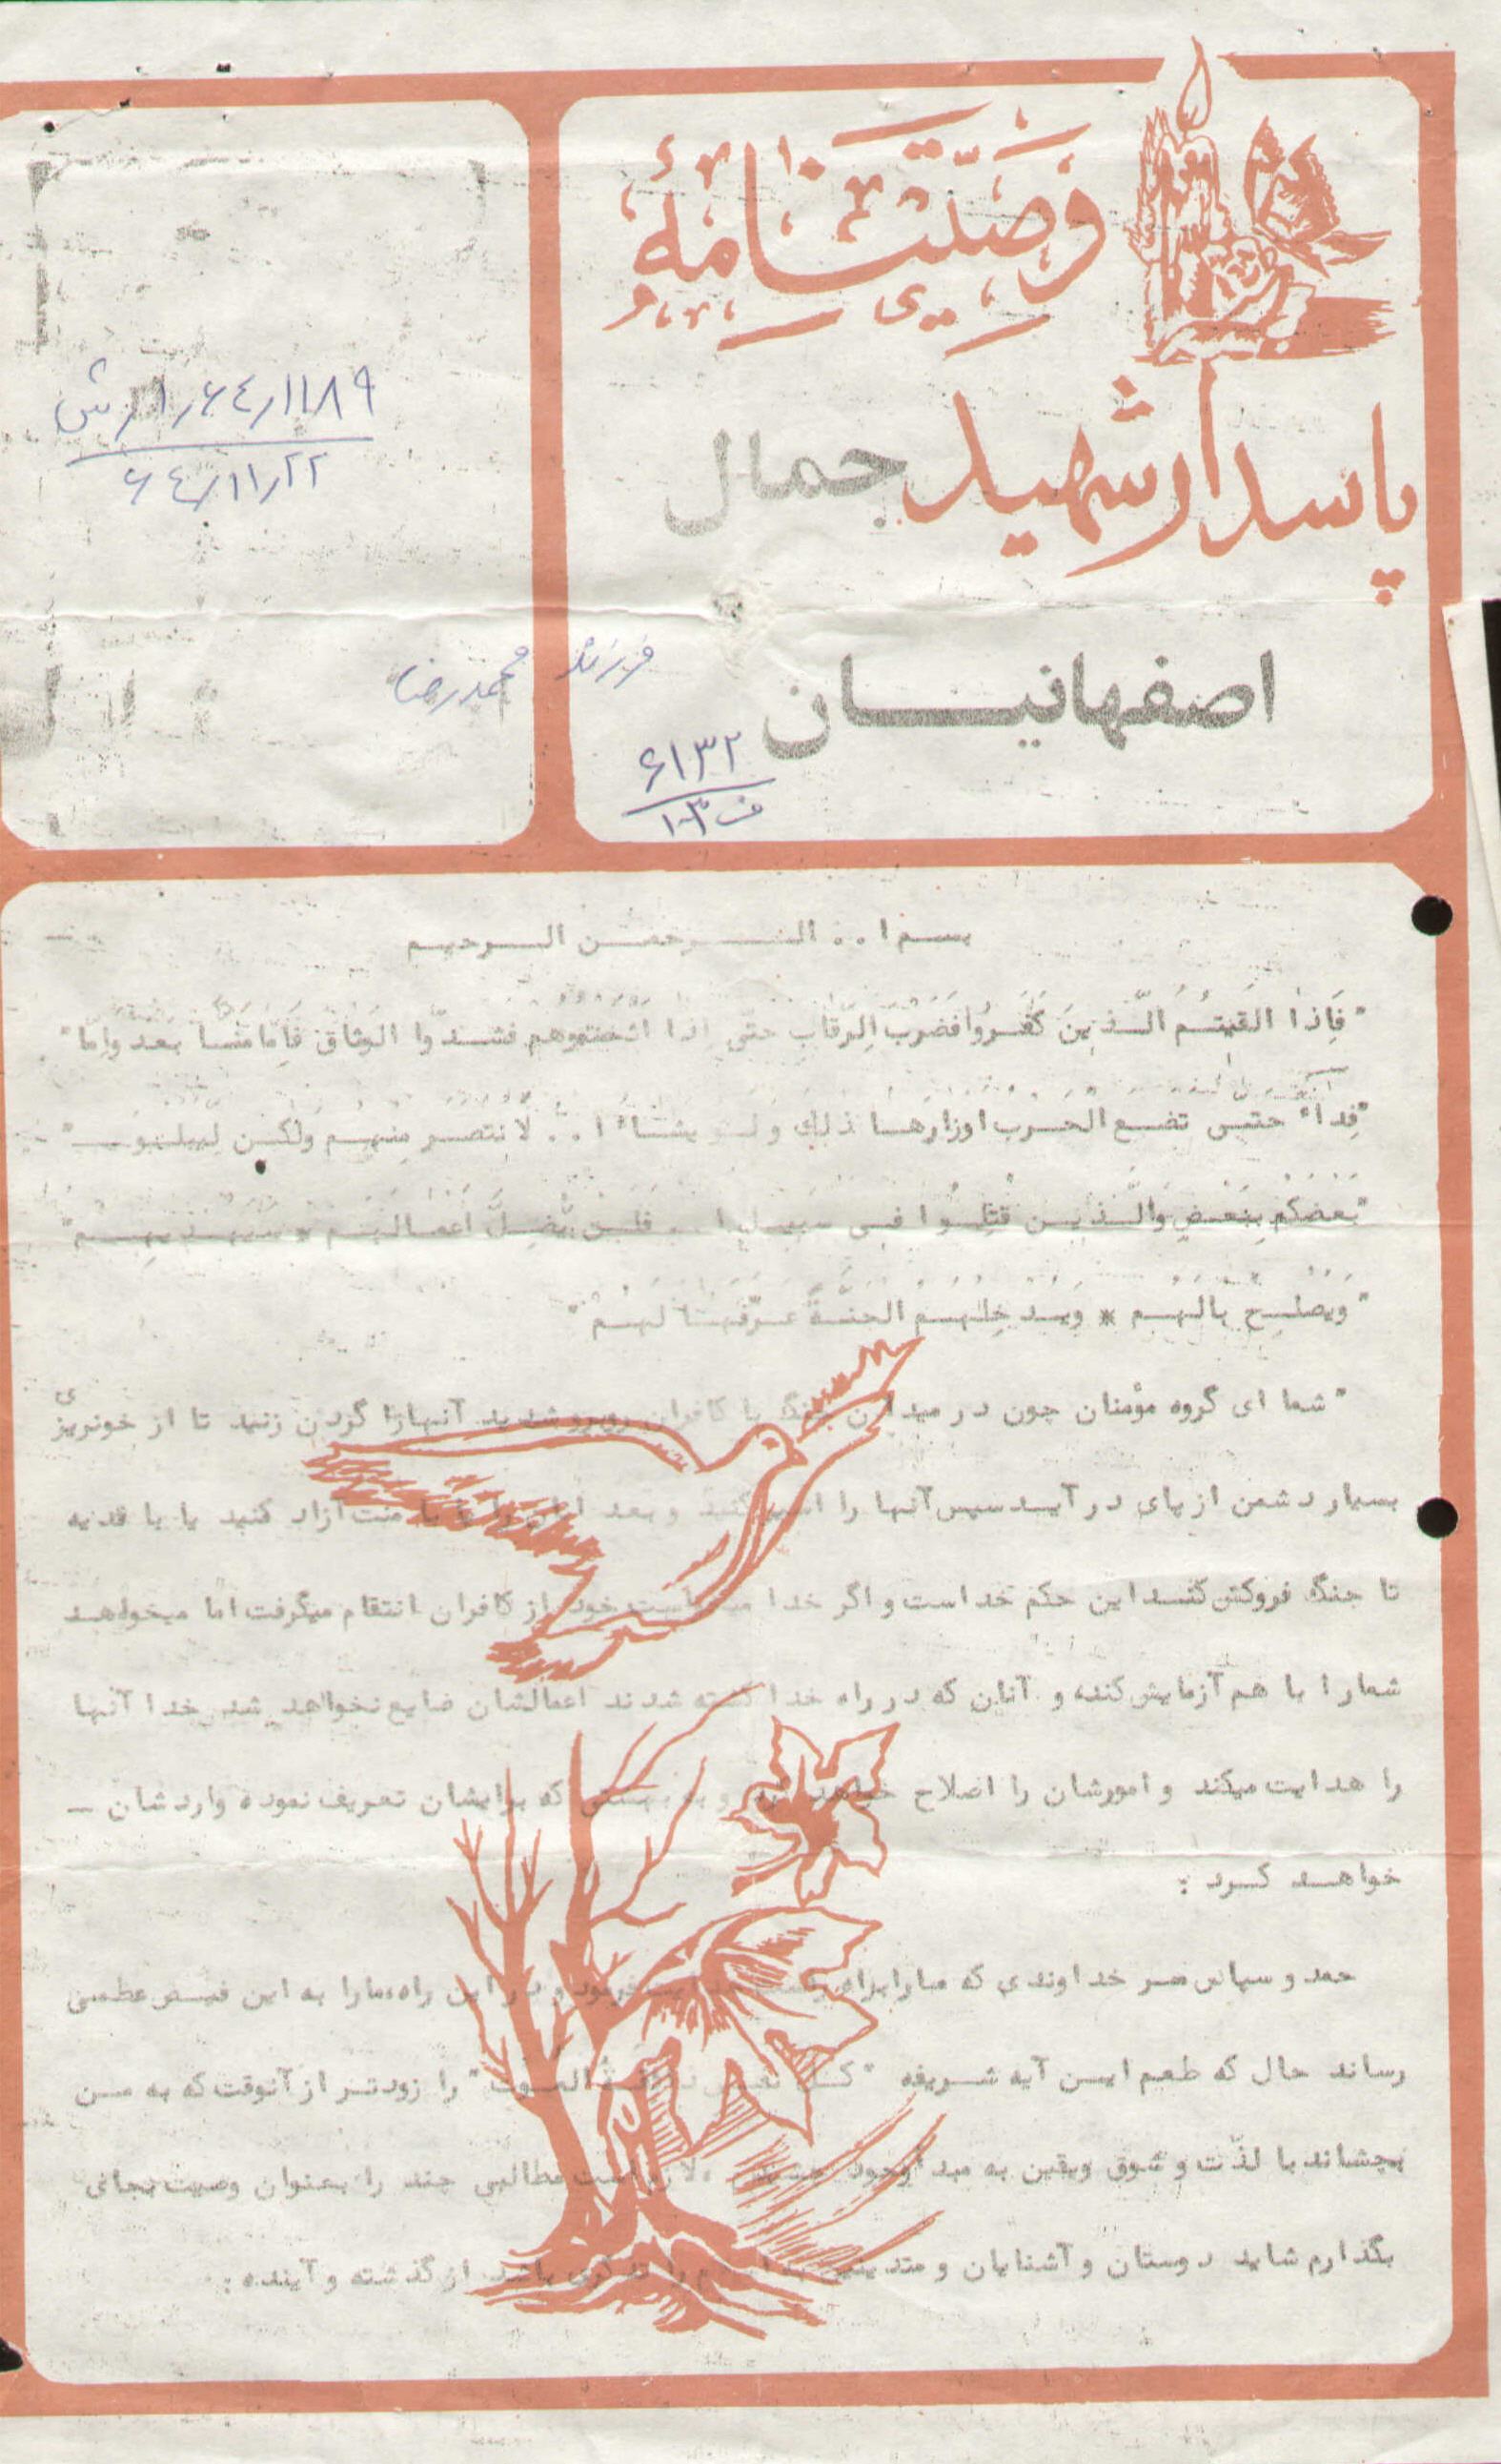 وصیّتنامهٔ
پاسدار شهید جمال
اصفهانیـــان
فرزند محمدرضا
۶۱۳۲
ف ۱۰۳
۱۱۸۹/۶٤/۱/ش
۶٤/۱۱/۲۲
بسم ا.. الــرحمــن الــرحیــم
"فَاِذا القیتُم الَّذینَ کَفَروُا فَضَربَ الِرّقابِ حتّی اذا اثخنتموهم فشدّوا الوثاق فَاِمّا مَنّـاً بَعد واِمّا"
"فِداءً حتـی تضـع الحـرب اوزارهـا ذلِکَ وَ لـو یشـاءُ ا.. لَا نتصـر مِنهـم ولکـن لِیبلـوـ"
"بَعضَکُم بِبَعـضٍ وَالّـذیـن قُتِلـوُا فـی سَبیـلِ ا.. فَلَـن یُّضِـلَّ اَعمـالَهُـم * سَیَهـدیهِـم"
"وَیصلـِح بالَهُـم * وَیـدخِلـُهُـمُ الجنّـةَ عـرّفَهـا لَهُـم"
"شما ای گروه مؤمنان چون در میدان جنگ با کافران روبرو شدید آنهارا گردن زنید تا از خونریزی
بسیار دشمن از پای در آیـد سپس آنها را اسیر کنید و بعد یا منت آزاد کنید یا با فدیه
تا جنگ فروکش کنـد این حکم خداست و اگر خدا میخواست خود از کافران انتقام میگرفت اما میخواهـد
شمارا با هم آزمایش کند، و آنان که در راه خدا کشته شدند اعمالشان ضایع نخواهد شد خدا آنها
را هدایت میکند و امورشان را اصلاح خواهد کرد و به بهشتی که برایشان تعریف نموده واردشان ـ
خواهـد کـرد :
حمد و سپاس مـر خداوندی که مـارا براه هدایت فرمود و در این راه، مارا به این فیـض عظمـی
رساند حال که طعم ایـن آیه شـریفه "کـل نفـس ذائقـة المـوت" را زودتـر از آنوقت که به مـن
بچشاند با لذّت و شوق ویقین به مبدأ وجود لازم است مطالبی چند را بعنوان وصیت بجای
بگذارم شاید دوستان و آشنایان و متدینین به اسلام را تذکری باشد از گذشته و آینده :